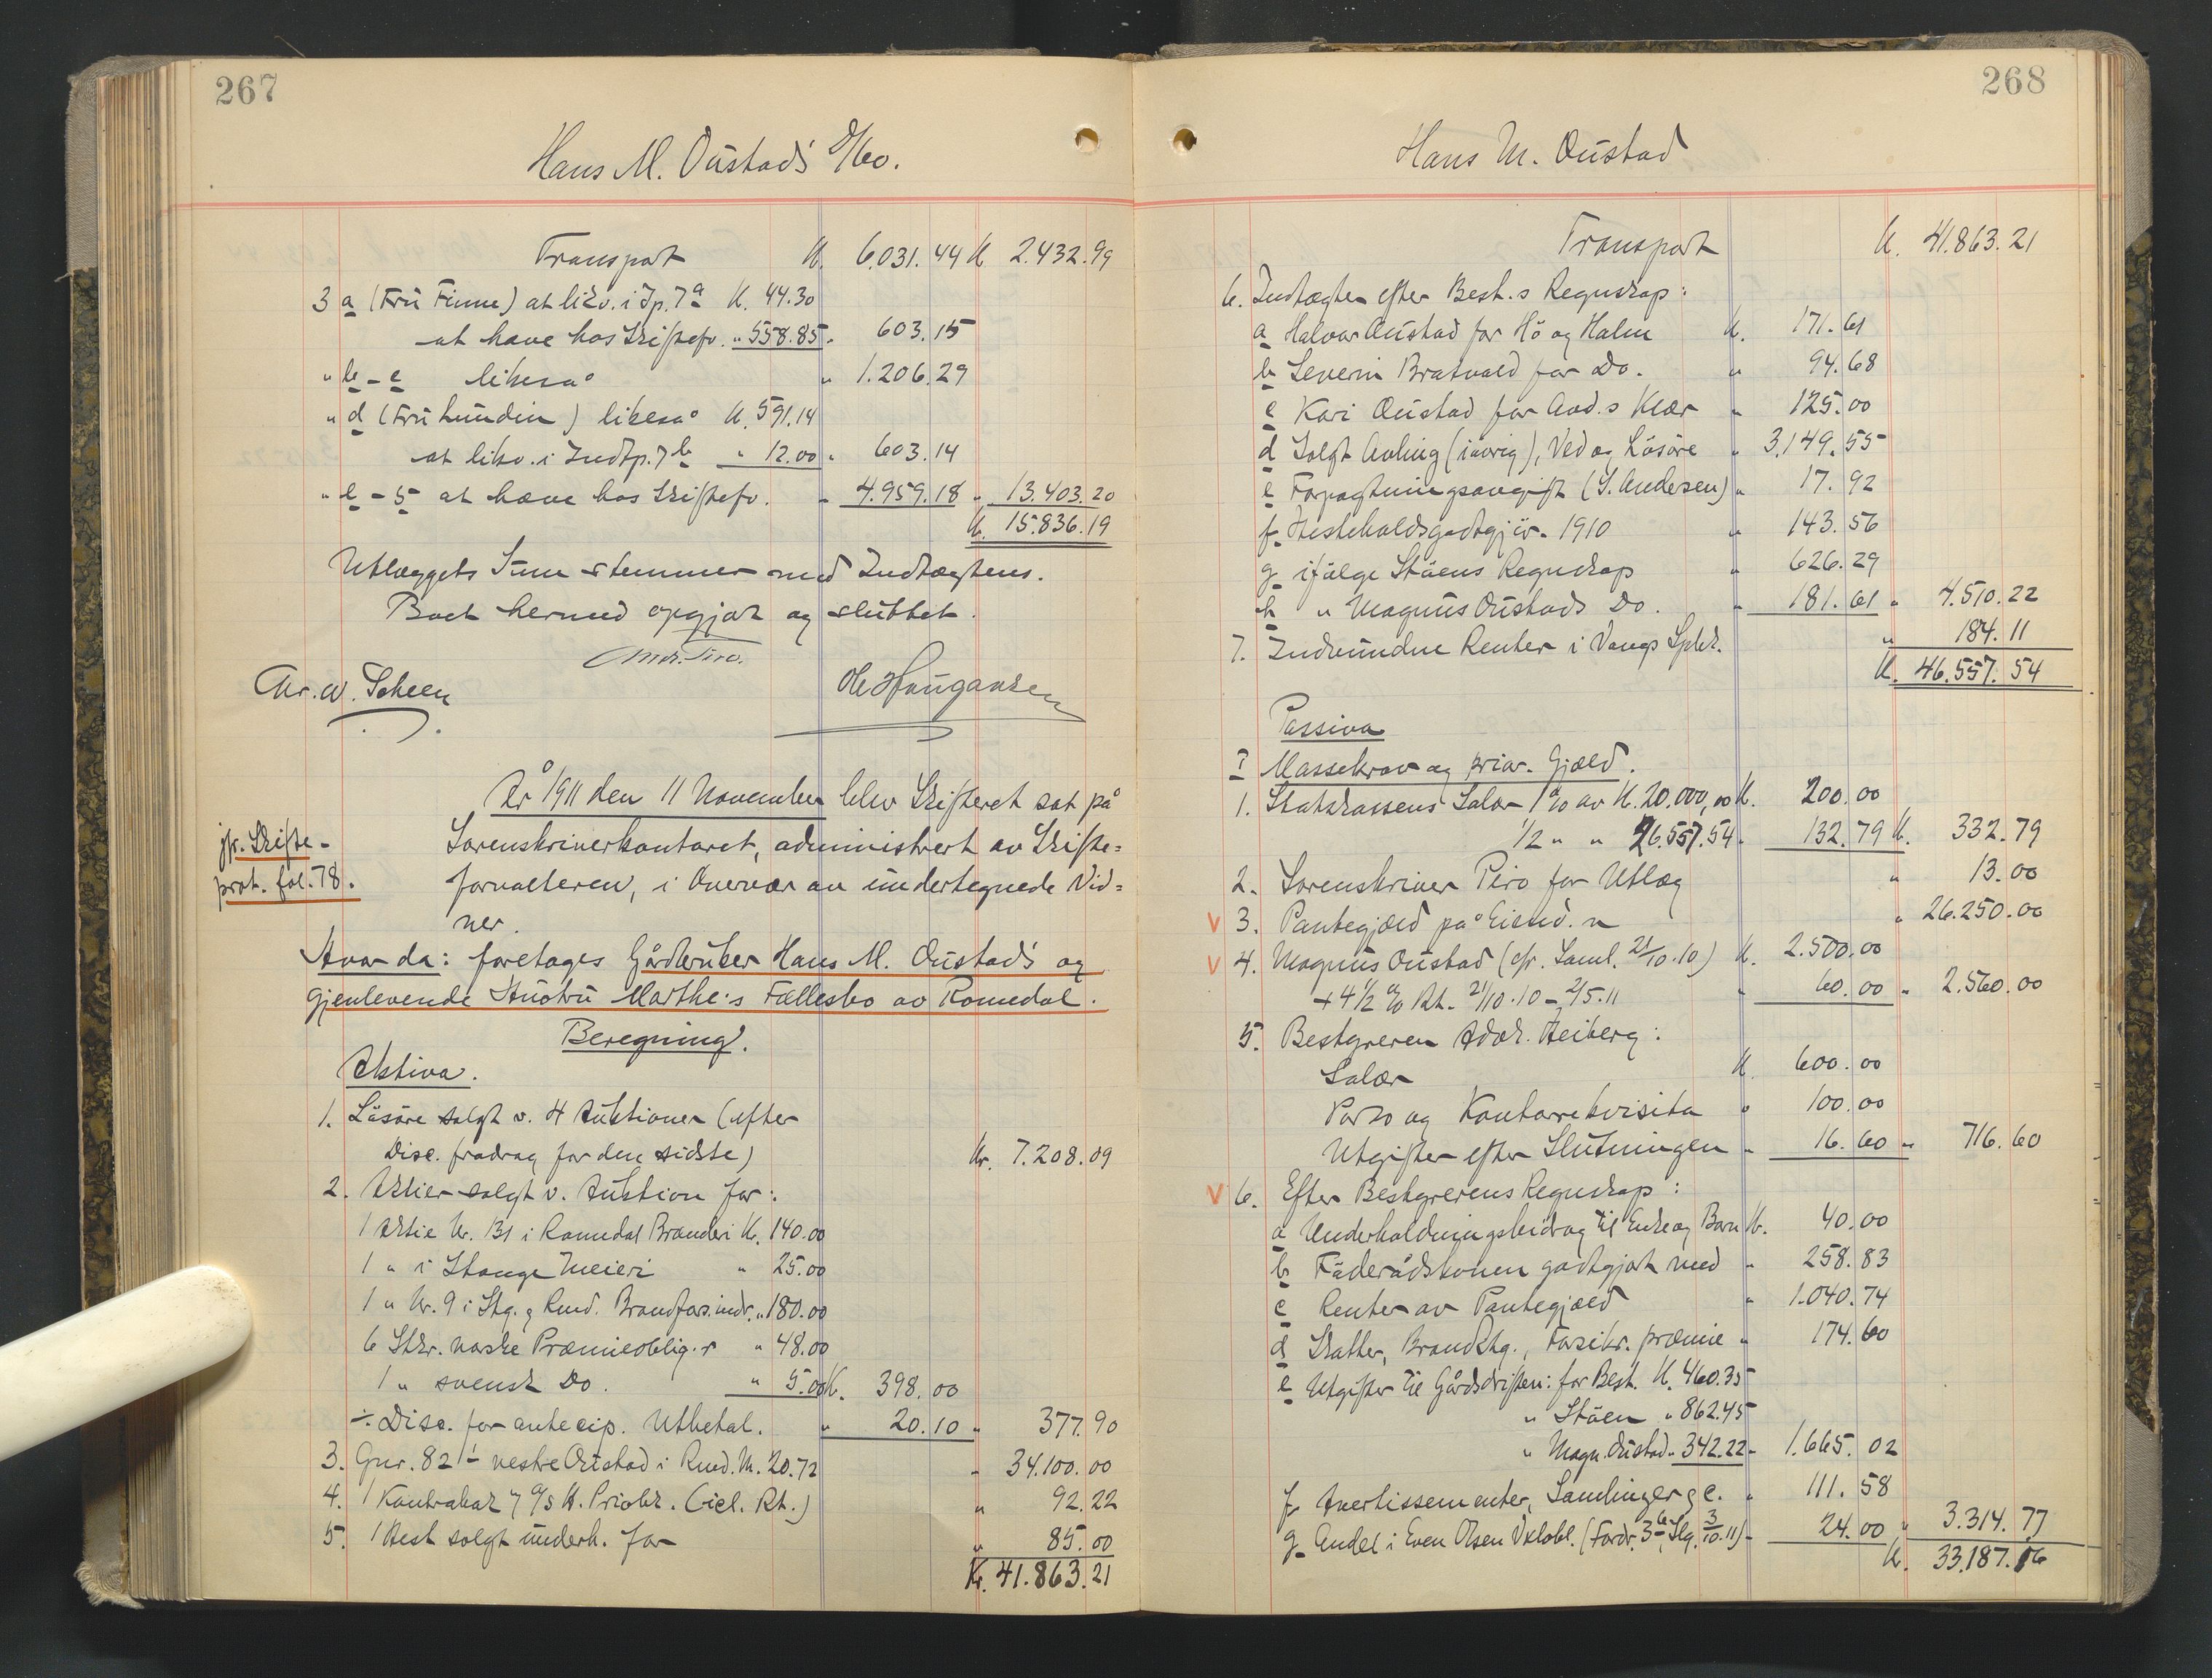 267
Hans M. Oustad's D/bo.
Transport K. 6.031.44 K. 2.432.99
3 a (Fru Finne) at likv. i Ip. 7a K. 44.30
at hæve hos Skiftefv. " 558.85 " 603.15
" b - c likesaa " 1.206.29
" d (Fru Lundin) likesaa K. 591.14
at likv. i Indtp. 7b " 12.00 " 603.14
" e - 5 at hæve hos Skiftefv. " 4.959.18 " 13.403.20
K. 15.836.19
Utlæggets Sum stemmer med Indtægtens.
Boet hermed opgjort og sluttet.
And. Piro.
Chr. W. Scheen Ole Haugansen
År 1911 den 11 November blev Skifteret sat på
jfr. Skifte-
prot. fol. 78.
Sorenskriverkontoret, administrert av Skifte=
forvalteren, i Overvær av undertegnede Vid=
ner.
Hvor da: foretoges Gårdbruker Hans M. Oustad's og
gjenlevende Hustru Marthe's Fællesbo av Romedal.
Beregning.
Aktiva.
1. Løsøre solgt v. 4 Auktioner (efter
Disc. fradrag for den sidste) Kr. 7.208.09
2. Aktier solgt v. Auktion for:
1 Aktie Nr. 131 i Romedal Brænderi K. 140.00
1 " i Stange Meieri " 25.00
1 " Nr. 9 i Stg. & Rmd. Brandfors.indr. " 180.00
6 Stkr. norske Præmieoblig.r " 48.00
1 " svensk Do. " 5.00 K. 398.00
÷ Disc. for antecip. Utbetal. " 20.10 " 377.90
3. Gnr. 82 1 vestre Oustad i Rmd. M. 20.72 " 34.100.00
4. 1 Kontrabok 7 A/s H. Privbk. (icl. Rt.) " 92.22
5. 1 Hest solgt underh. for " 85.00
Kr. 41.863.21
268
Hans M. Oustad
Transport K. 41.863.21
6. Indtægter efter Best.s Regnskap:
a Halvor Oustad for Hø og Halm K. 171.61
b Severin Bratvold for Do. " 94.68
c Kari Oustad for Avd.s Klær " 125.00
d Solgt Avling (iøvrig), Ved og Løsøre " 3.149.55
e Forpagtningsavgift (S. Andersen) " 17.92
f Hesteholdsgodtgjør. 1910 " 143.56
g ifølge Støens Regnskap " 626.29
h " Magnus Oustads Do. " 181.61 " 4.510.22
7. Indvundne Renter i Vangs Spbk. " 184.11
K. 46.557.54
Passiva
I Massekrav og prior. Gjæld.
1. Statskassens Salær 1% av K. 20.000,00 K. 200.00
1/2 " " 26.557.54 " 132.79 K. 332.79
2. Sorenskriver Piro for Utlæg " 13.00
V 3. Pantegjæld på Eiend.n " 26.250.00
V 4. Magnus Oustad (cfr. Saml. 21/10.10) K. 2.500.00
+ 4 1/2 % Rt. 21/10.10 - 2/5.11 " 60.00 " 2.560.00
5. Bestyreren Advk. Heiberg:
Salær K. 600.00
Porto og Kontorrekvisita " 100.00
Utgifter efter Slutningen " 16.60 " 716.60
V 6. Efter Bestyrerens Regnskap:
a Underholdningsbidrag til Enke og Barn K. 40.00
b Føderådskonen godtgjort med " 258.83
c Renter av Pantegjæld " 1.040.74
d Skatter, Brandktg., Forsikr. præmie " 174.60
e Utgifter til Gårdsdriften: for Best. K. 460.35
" Støen " 862.45
" Magn. Oustad " 342.22 " 1.665.02
f Avertissementer, Samlinger &c. " 111.58
g Andel i Even Olsen (Fordr. 3 b, Slg. 3/10.11) " 24.00 " 3.314.77
K. 33.187.16